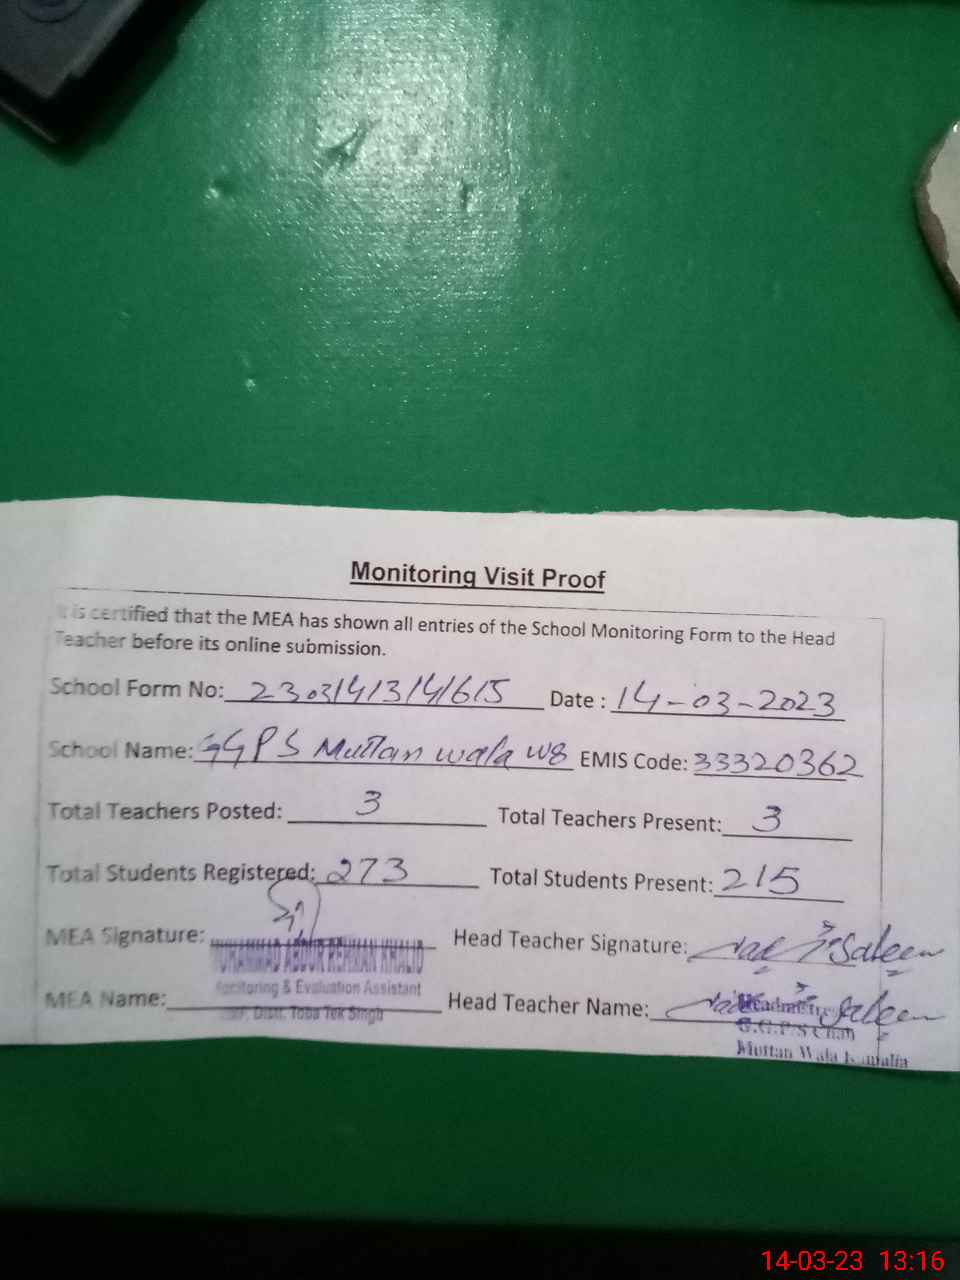 Monitoring Visit Proof
It is certified that the MEA has shown all entries of the School Monitoring Form to the Head
Teacher before its online submission.
School Form No: 23031413141615 Date : 14-03-2023
School Name: GGPS Muttan wala W8 EMIS Code: 33320362
Total Teachers Posted: 3 Total Teachers Present: 3
Total Students Registered: 273 Total Students Present: 215
MEA Signature: Head Teacher Signature: Saleem
MUHAMMAD ABDUR REHMAN KHALID
Monitoring & Evaluation Assistant
MEA Name: Head Teacher Name: Saleem
Distt. Toba Tek Singh
Headmistress
G.G.P/S Chah
Muttan Wala Kamalia
14-03-23 13:16